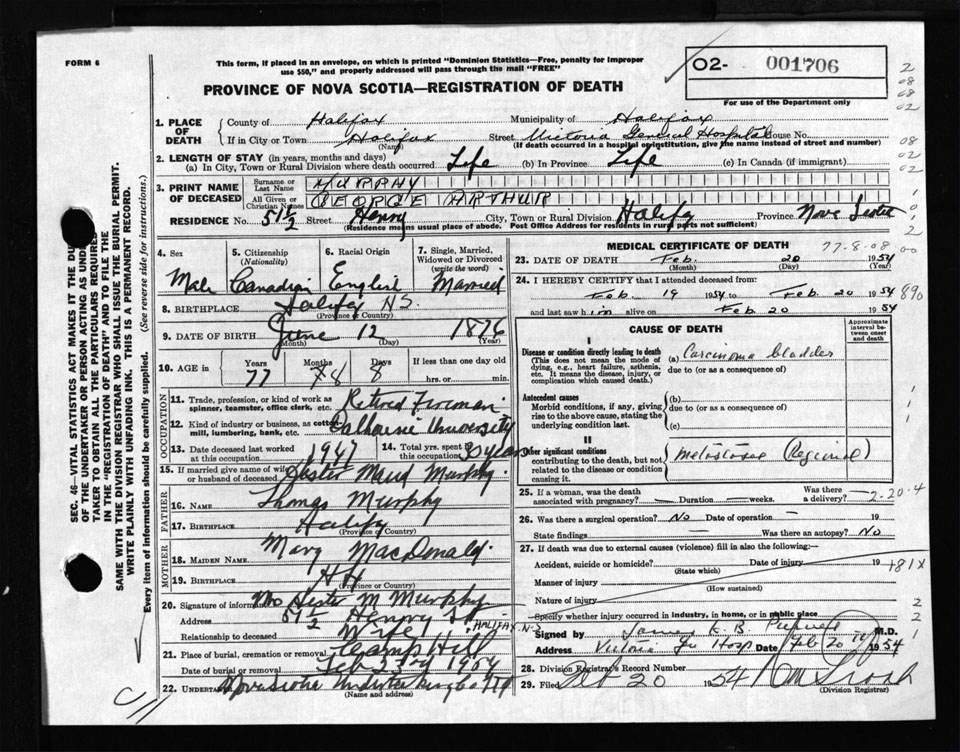 FORM 6
This form, if placed in an envelope, on which is printed "Dominion Statistics—Free, penalty for improper
use $50," and properly addressed will pass through the mail "FREE"
PROVINCE OF NOVA SCOTIA—REGISTRATION OF DEATH
02- 001706
For use of the Department only
1. PLACE OF DEATH
County of Halifax Municipality of Halifax
If in City or Town Halifax Street Victoria General Hospital House No.
(Name) (If death occurred in a hospital or institution, give the name instead of street and number)
2. LENGTH OF STAY (in years, months and days)
(a) In City, Town or Rural Division where death occurred Life (b) In Province Life (c) In Canada (if immigrant)
3. PRINT NAME OF DECEASED
Surname or Last Name MURPHY
All Given or Christian Names GEORGE ARTHUR
RESIDENCE No. 51 1/2 Street Henry City, Town or Rural Division Halifax Province Nova Scotia
(Residence means usual place of abode. Post Office Address for residents in rural parts not sufficient)
4. Sex
Male
5. Citizenship (Nationality)
Canadian
6. Racial Origin
English
7. Single, Married, Widowed or Divorced (write the word)
Married
8. BIRTHPLACE Halifax N.S.
(Province or Country)
9. DATE OF BIRTH June 12 1876
(Month) (Day) (Year)
10. AGE in Years Months Days If less than one day old
77 8 8 hrs. or min.
OCCUPATION
11. Trade, profession, or kind of work as spinner, teamster, office clerk, etc. Retired Fireman
12. Kind of industry or business, as cotton mill, lumbering, bank, etc. Dalhousie University
13. Date deceased last worked at this occupation 1947
14. Total yrs. spent in this occupation years
15. If married give name of wife or husband of deceased Hester Maud Murphy
FATHER
16. NAME Thomas Murphy
17. BIRTHPLACE Halifax
(Province or Country)
MOTHER
18. MAIDEN NAME Mary MacDonald
19. BIRTHPLACE
(Province or Country)
20. Signature of informant Mrs Hester M Murphy
Address 51 1/2 Henry St. HALIFAX N.S.
Relationship to deceased Wife
21. Place of burial, cremation or removal Camp Hill
Date of burial or removal Feb 23rd 1954
22. UNDERTAKER Nova Scotia Undertaking Co
(Name and address)
MEDICAL CERTIFICATE OF DEATH
77-8-08
23. DATE OF DEATH Feb. 20 1954
(Month) (Day) (Year)
24. I HEREBY CERTIFY that I attended deceased from
Feb. 19 1954 to Feb 20 1954
and last saw him alive on Feb 20 1954
CAUSE OF DEATH
Approximate interval between onset and death
I
Disease or condition directly leading to death (a) Carcinoma bladder
(This does not mean the mode of dying, e.g., heart failure, asthenia, etc. It means the disease, injury, or complication which caused death.)
due to (or as a consequence of)
Antecedent causes
Morbid conditions, if any, giving rise to the above cause, stating the underlying condition last.
(b)
due to (or as a consequence of)
(c)
II
Other significant conditions
contributing to the death, but not related to the disease or condition causing it.
Metastases (Regional)
25. If a woman, was the death associated with pregnancy? — Duration — weeks. Was there a delivery? —
2-20-4
26. Was there a surgical operation? No Date of operation — 19
State findings — Was there an autopsy? No
27. If death was due to external causes (violence) fill in also the following:—
Accident, suicide or homicide? Date of injury 19
(State which)
181X
Manner of injury
(How sustained)
Nature of injury
Specify whether injury occurred in industry, in home, or in public place
Signed by M.D.
Address Victoria Gen Hosp Date Feb 20 1954
28. Division Registrar's Record Number
29. Filed Feb 20 1954
(Division Registrar)
SEC. 46—VITAL STATISTICS ACT MAKES IT THE DUTY
OF THE UNDERTAKER OR PERSON ACTING AS UNDERTAKER
TAKER TO OBTAIN ALL THE PARTICULARS REQUIRED
IN THE "REGISTRATION OF DEATH" AND TO FILE THE
SAME WITH THE DIVISION REGISTRAR WHO SHALL ISSUE THE BURIAL PERMIT.
WRITE PLAINLY WITH UNFADING INK. THIS IS A PERMANENT RECORD.
Every item of information should be carefully supplied. (See reverse side for instructions.)